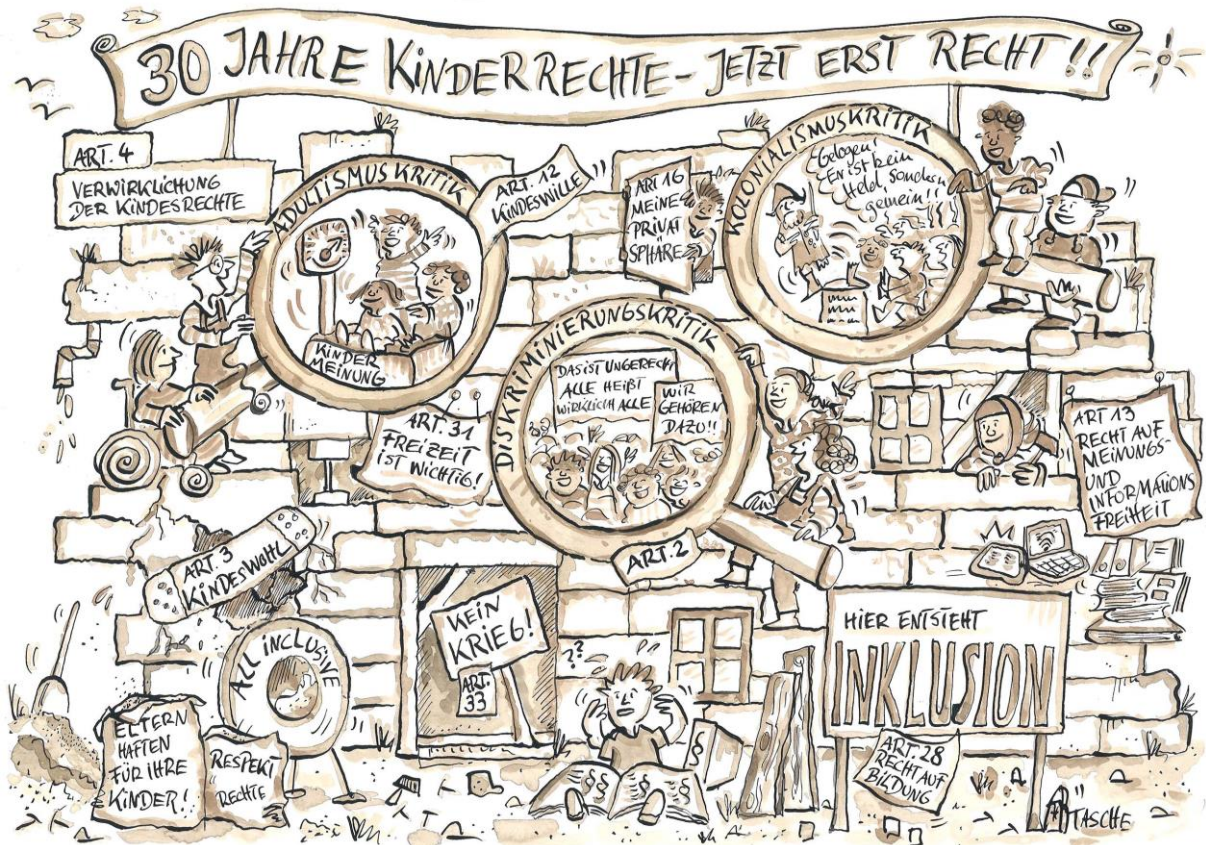 30 JAHRE KINDERRECHTE - JETZT ERST RECHT!!
ART. 4
VERWIRKLICHUNG
DER KINDESRECHTE
ADULTISMUSKRITIK
KINDER
MEINUNG
ART. 12
KINDESWILLE
ART 16
MEINE
PRIVAT
SPHÄRE
KOLONIALISMUSKRITIK
Gelogen!
Er ist kein
Held, sondern
gemein!!
DISKRIMINIERUNGSKRITIK
DAS IST UNGERECHT
ALLE HEIßT
WIRKLICH ALLE
WIR
GEHÖREN
DAZU!!
ART. 2
ART. 31
FREIZEIT
IST WICHTIG!
ART 13
RECHT AUF
MEINUNGS
UND
INFORMATIONS
FREIHEIT
ART. 3
KINDESWOHL
ALL INCLUSIVE
KEIN
KRIEG!
ART.
33
??
ELTERN
HAFTEN
FÜR IHRE
KINDER!
RESPEKT
RECHTE
§ § § §
§
HIER ENTSTEHT
INKLUSION
ART. 28
RECHT AUF
BILDUNG
TASCHE